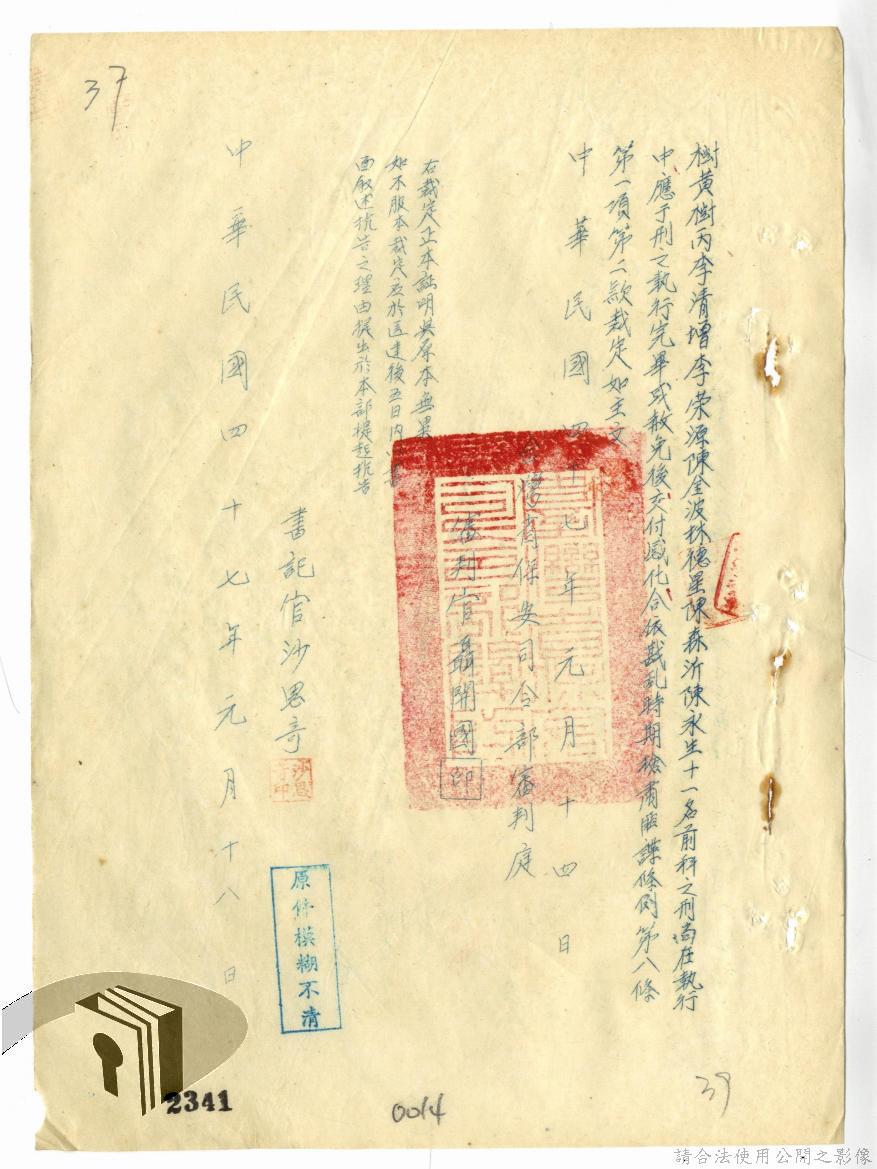 37
樹黃樹丙李清增李荣源陳金波林德星陳森沂陳永生十一名前科之刑尚在執行
中應于刑之執行完畢或赦免後交付感化合依戡乱時期檢肅匪諜條例第八條
第一項第二款裁定如主文
中華民國四十七年元月十四日
台灣省保安司令部審判庭
審判官聶開國
印
右裁定正本証明與原本無異
如不服本裁定應於送達後五日內以書
面叙述抗告之理由提出於本部提起抗告
書記官沙思奇
中華民國四十七年元月十八日
原件模糊不清
2341
0014
39
請合法使用公開之影像